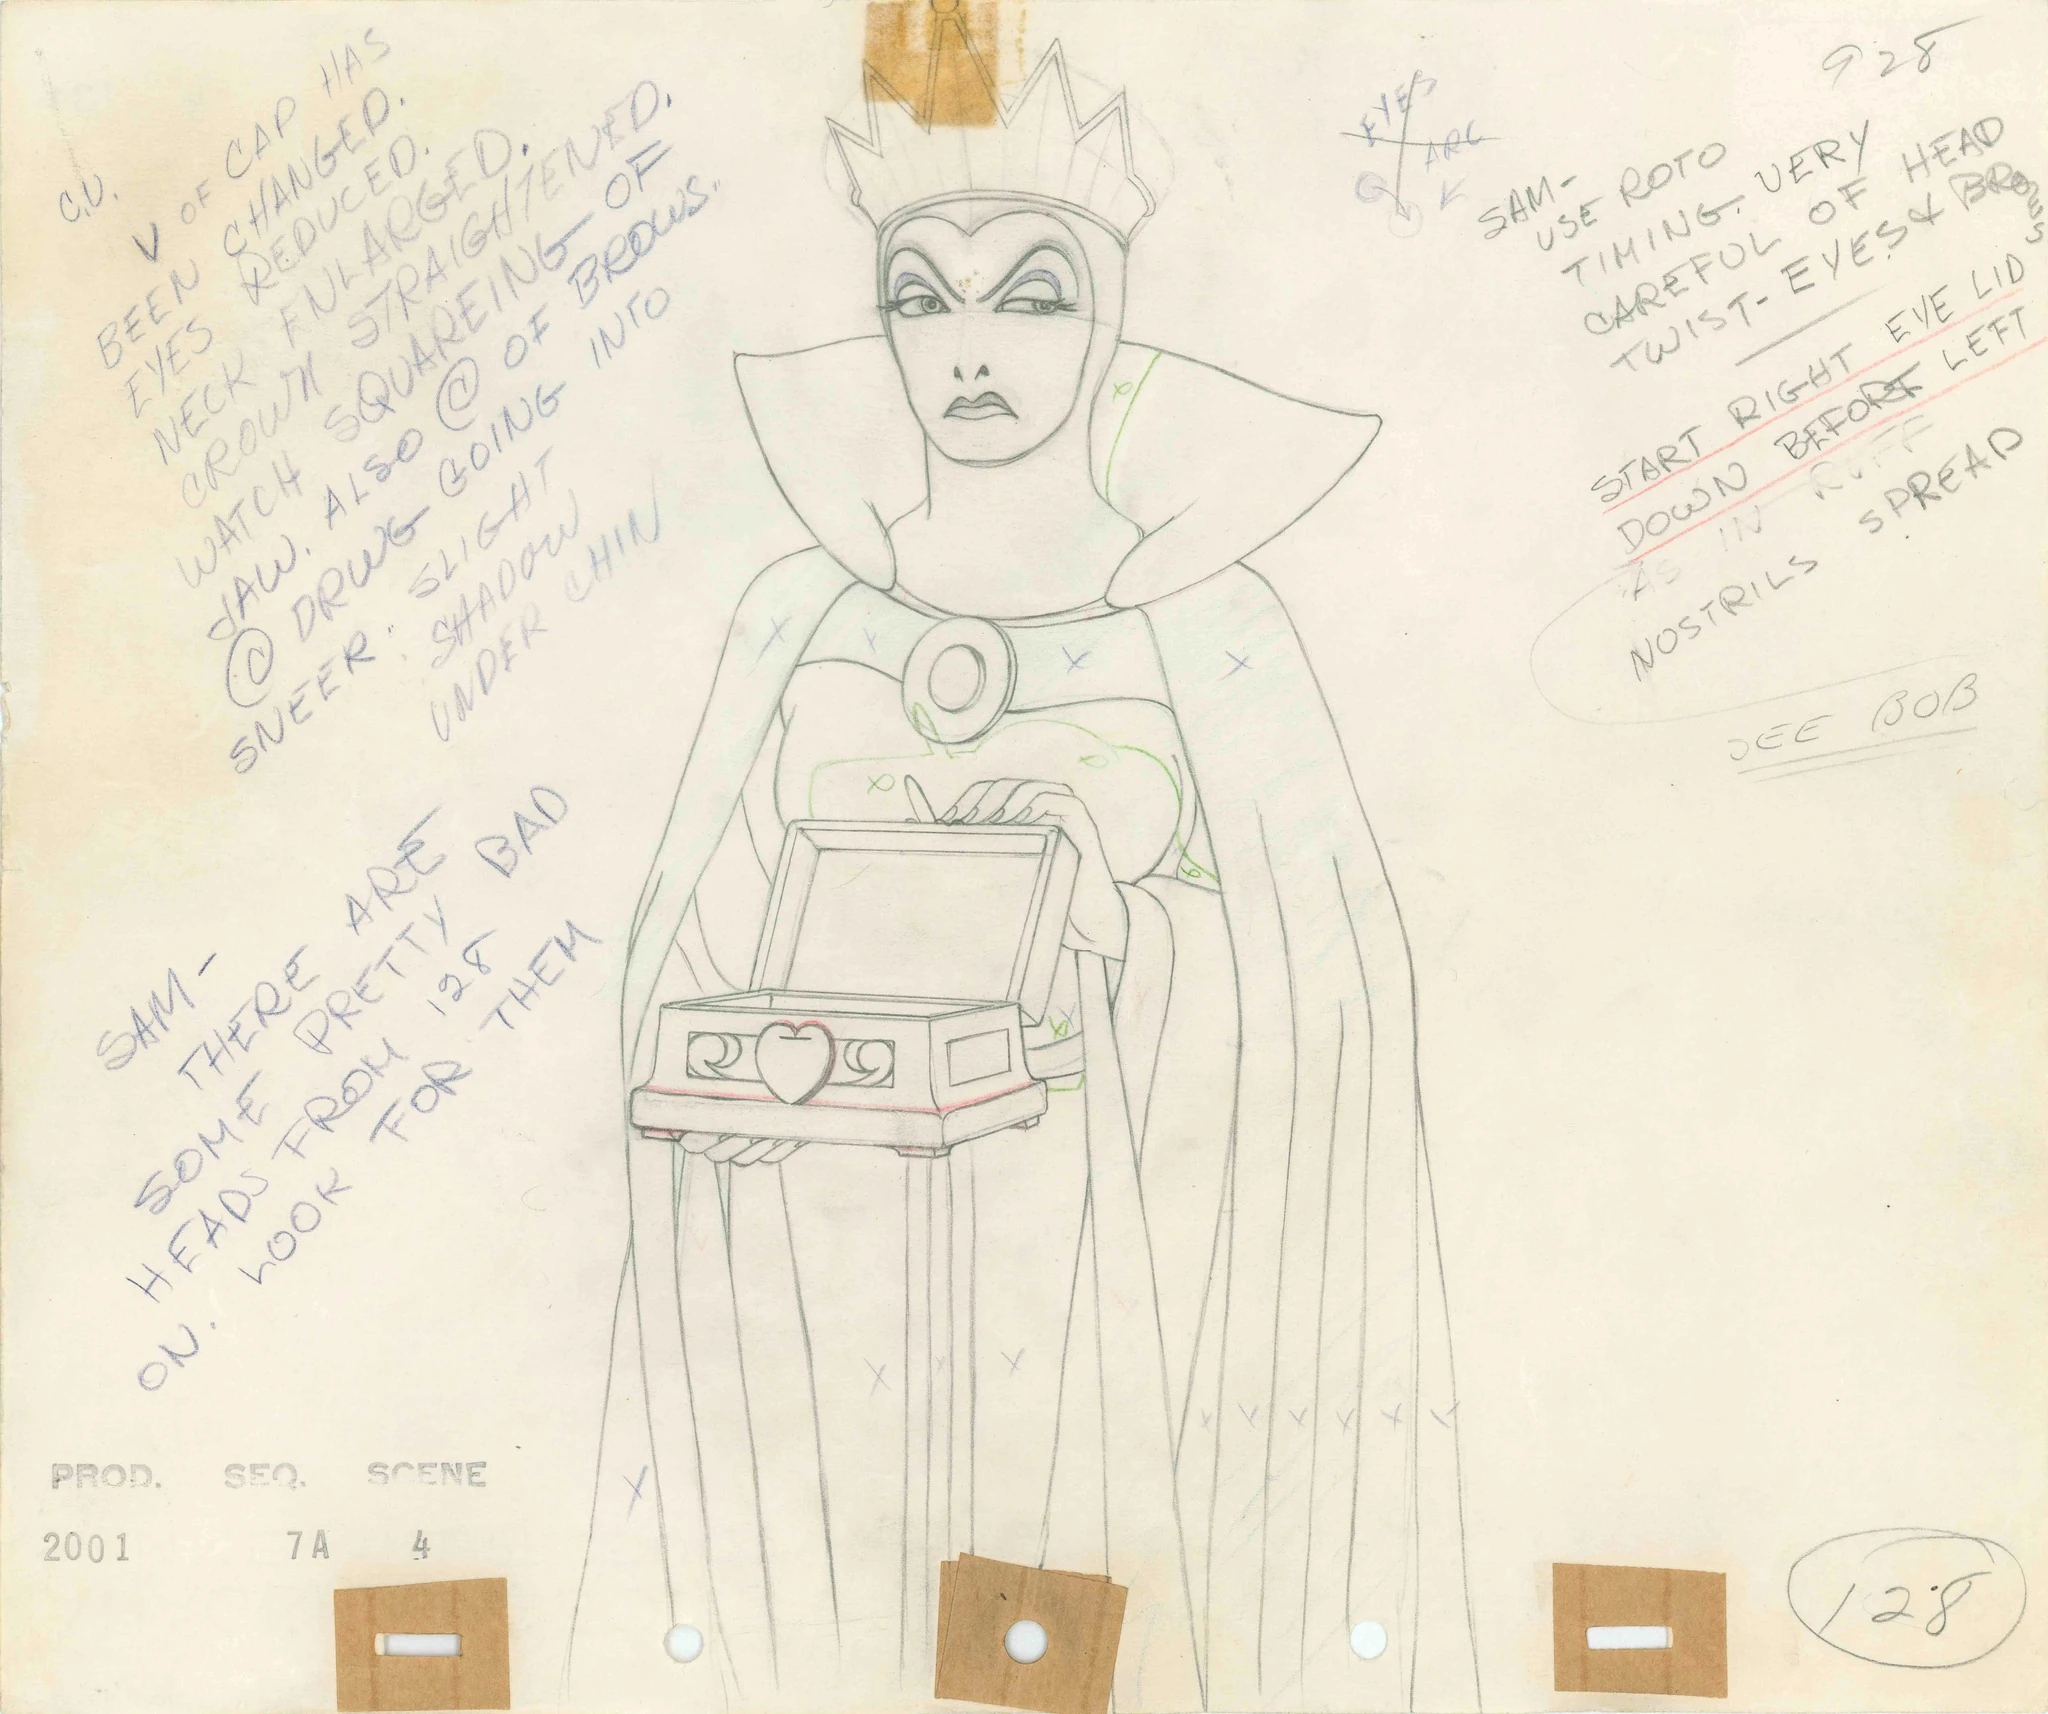 C.U.
V OF CAP HAS
BEEN CHANGED.
EYES REDUCED.
NECK ENLARGED.
CROWN STRAIGHTENED.
WATCH SQUAREING OF
JAW. ALSO @ OF BROWS.
@ DRWG GOING INTO
SNEER: SLIGHT
SHADOW
UNDER CHIN
SAM-
THERE ARE
SOME PRETTY BAD
HEADS FROM 128
ON. LOOK FOR THEM
EYES
ARC
928
SAM-
USE ROTO
TIMING. VERY
CAREFUL OF HEAD
TWIST-EYES & BROWS
START RIGHT EYE LID
DOWN BEFORE LEFT
AS IN RUFF
NOSTRILS SPREAD
SEE BOB
PROD. SEQ. SCENE
2001 7A 4
128